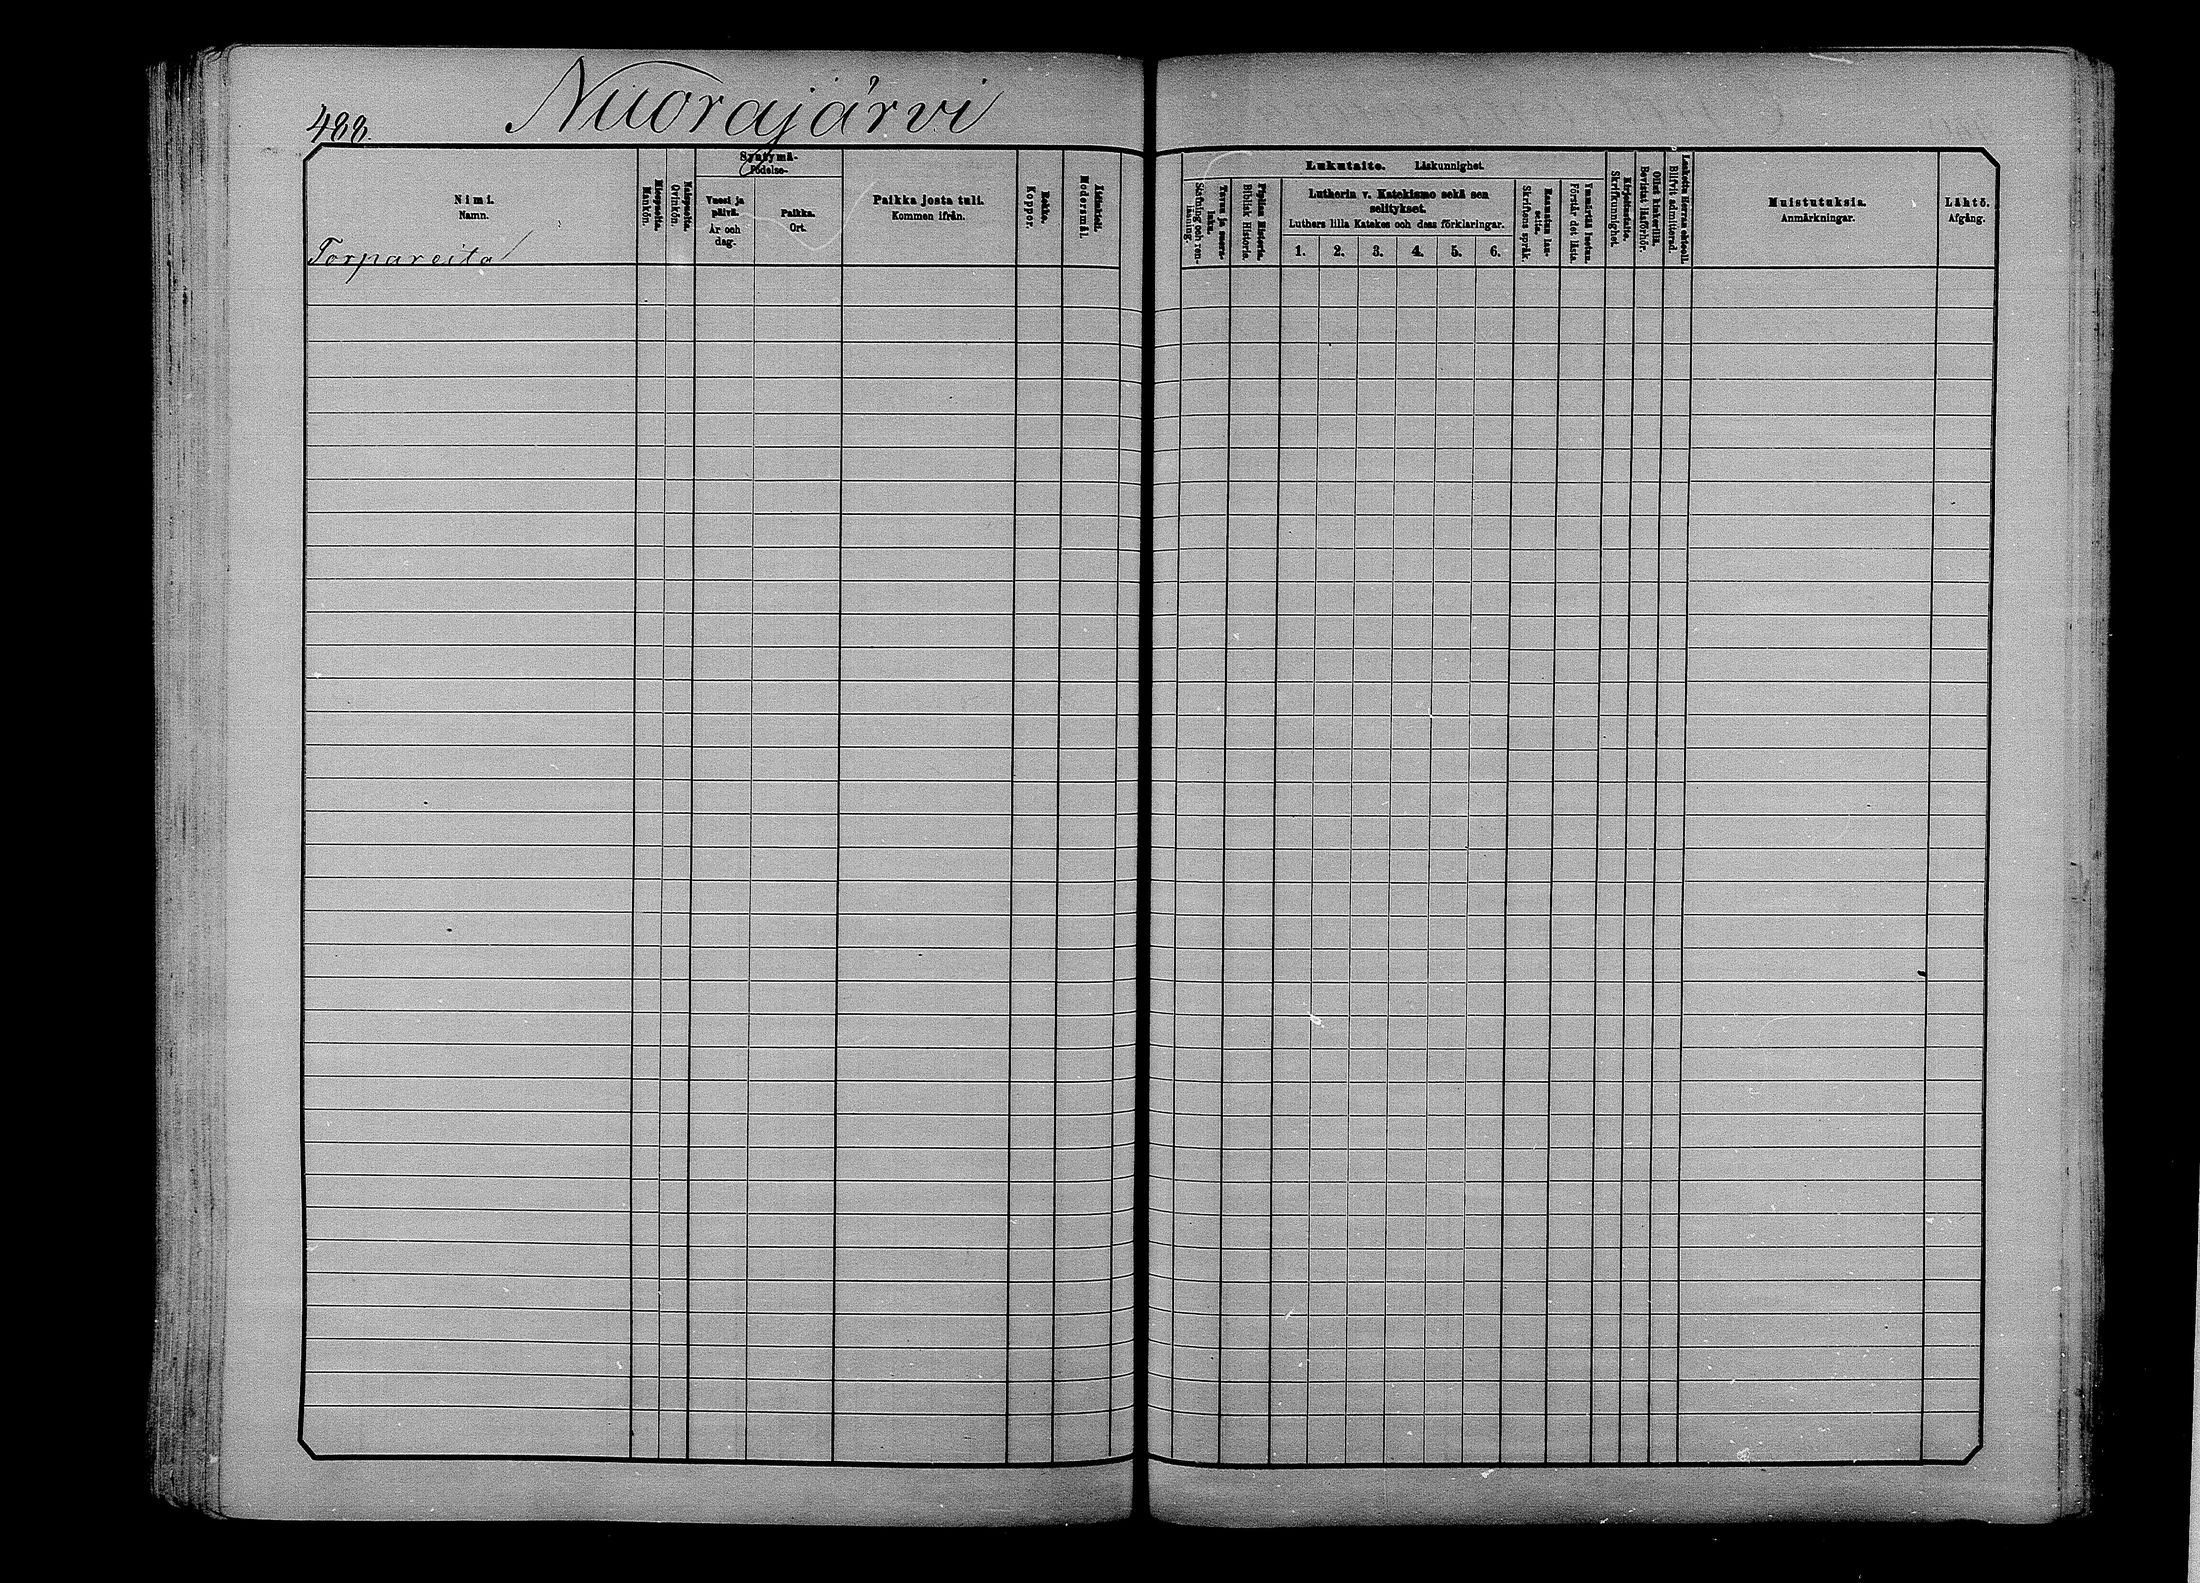 488.
Nuorajärvi
Nimi.
Namn.
Torpareita
Miespuolia.
Mankön.
Vaimopuolia.
Qvinkön.
Syntymä-
Födelse-
Vuosi ja
päivä.
År och
dag.
Paikka.
Ort.
Paikka josta tuli.
Kommen ifrån.
Rokko.
Koppor.
Äidinkieli.
Modersmål.
Tavuu ja suora-
luku.
Stäfning och ren-
läsning.
Piplian Historia.
Biblisk Historia.
Lukutaito. Läskunnighet.
Lutherin v. Katekismo sekä sen
selitykset.
Luthers lilla Katekes och dess förklaringar.
1. 2. 3. 4. 5. 6.
Raamatun lau-
seita.
Skriftens språk.
Ymmärtää luetun.
Förstår det lästa.
Kirjoitustaito.
Skrifkunnighet.
Ollut kinkerillä.
Bevistat läsförhör.
Laskettu Herran ehtooll.
Blifvit admitterad.
Muistutuksia.
Anmärkningar.
Lähtö.
Afgång.